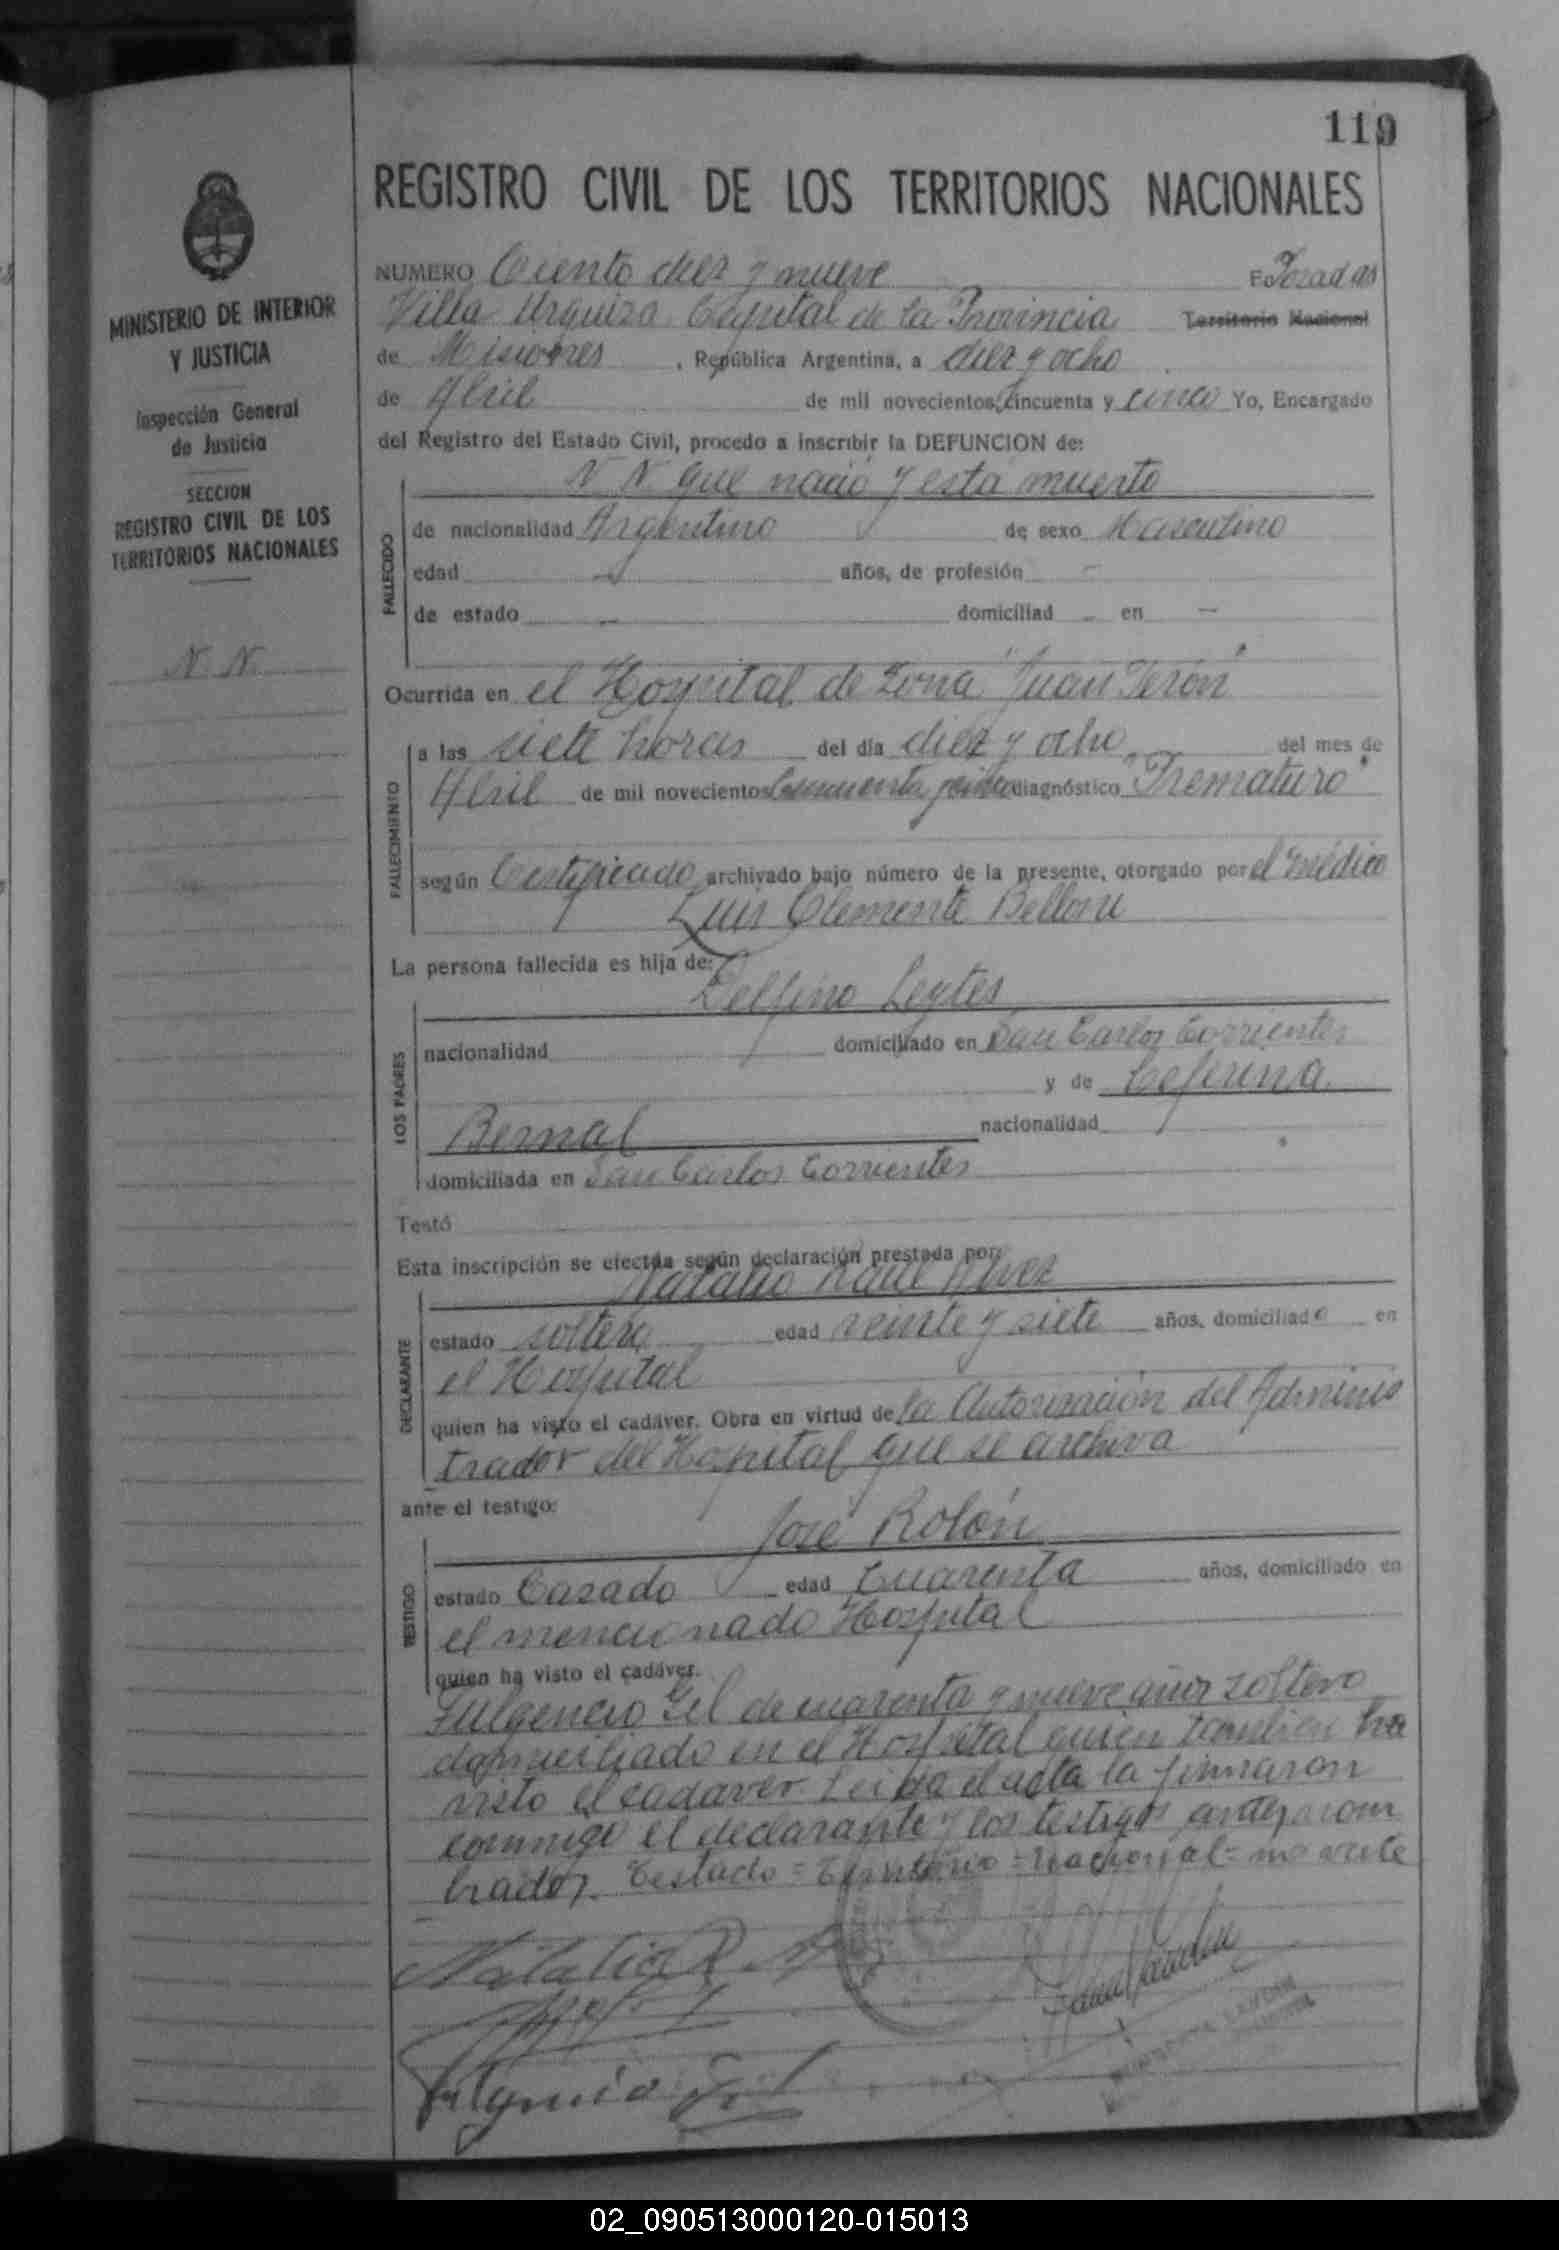 119
REGISTRO CIVIL DE LOS TERRITORIOS NACIONALES
MINISTERIO DE INTERIOR
Y JUSTICIA
Inspección General
de Justicia
SECCION
REGISTRO CIVIL DE LOS
TERRITORIOS NACIONALES
N. N.
NUMERO Ciento diez y nueve En Posadas
Villa Urquiza Capital de la Provincia Territorio Nacional
de Misiones, República Argentina, a diez y ocho
de Abril de mil novecientos cincuenta y cinco Yo, Encargado
del Registro del Estado Civil, procedo a inscribir la DEFUNCION de:
N N que nació y está muerto
FALLECIDO
de nacionalidad Argentino de sexo Masculino
edad - años, de profesión -
de estado - domiciliad - en -
Ocurrida en el Hospital de Zona "Juan Perón"
FALLECIMIENTO
a las siete horas del día diez y ocho del mes de
Abril de mil novecientos cincuenta y cinco diagnóstico "Prematuro"
según Certificado archivado bajo número de la presente, otorgado por el médico
Luis Clemente Belloni
La persona fallecida es hija de:
LOS PADRES
Delfino Leytes
nacionalidad domiciliado en San Carlos Corrientes
y de Ceferina
Bernal nacionalidad
domiciliada en San Carlos Corrientes
Testó
Esta inscripción se efectúa según declaración prestada por:
DECLARANTE
Natalio Raul
estado soltero edad veinte y siete años, domiciliado en
el Hospital
quien ha visto el cadáver. Obra en virtud de la Autorización del Adminis
trador del Hospital que se archiva
ante el testigo:
TESTIGO
José Rolón
estado Casado edad Cuarenta años, domiciliado en
el mencionado Hospital
quien ha visto el cadáver.
Fulgencio Gil de cuarenta y nueve años soltero
domiciliado en el Hospital quien tambien ha
visto el cadaver. Leida el acta la firmaron
conmigo el declarante y los testigos antes nom
brados. Testado = Territorio = Nacional = no vale
Natalio R.
Fulgencio Gil
02_090513000120-015013